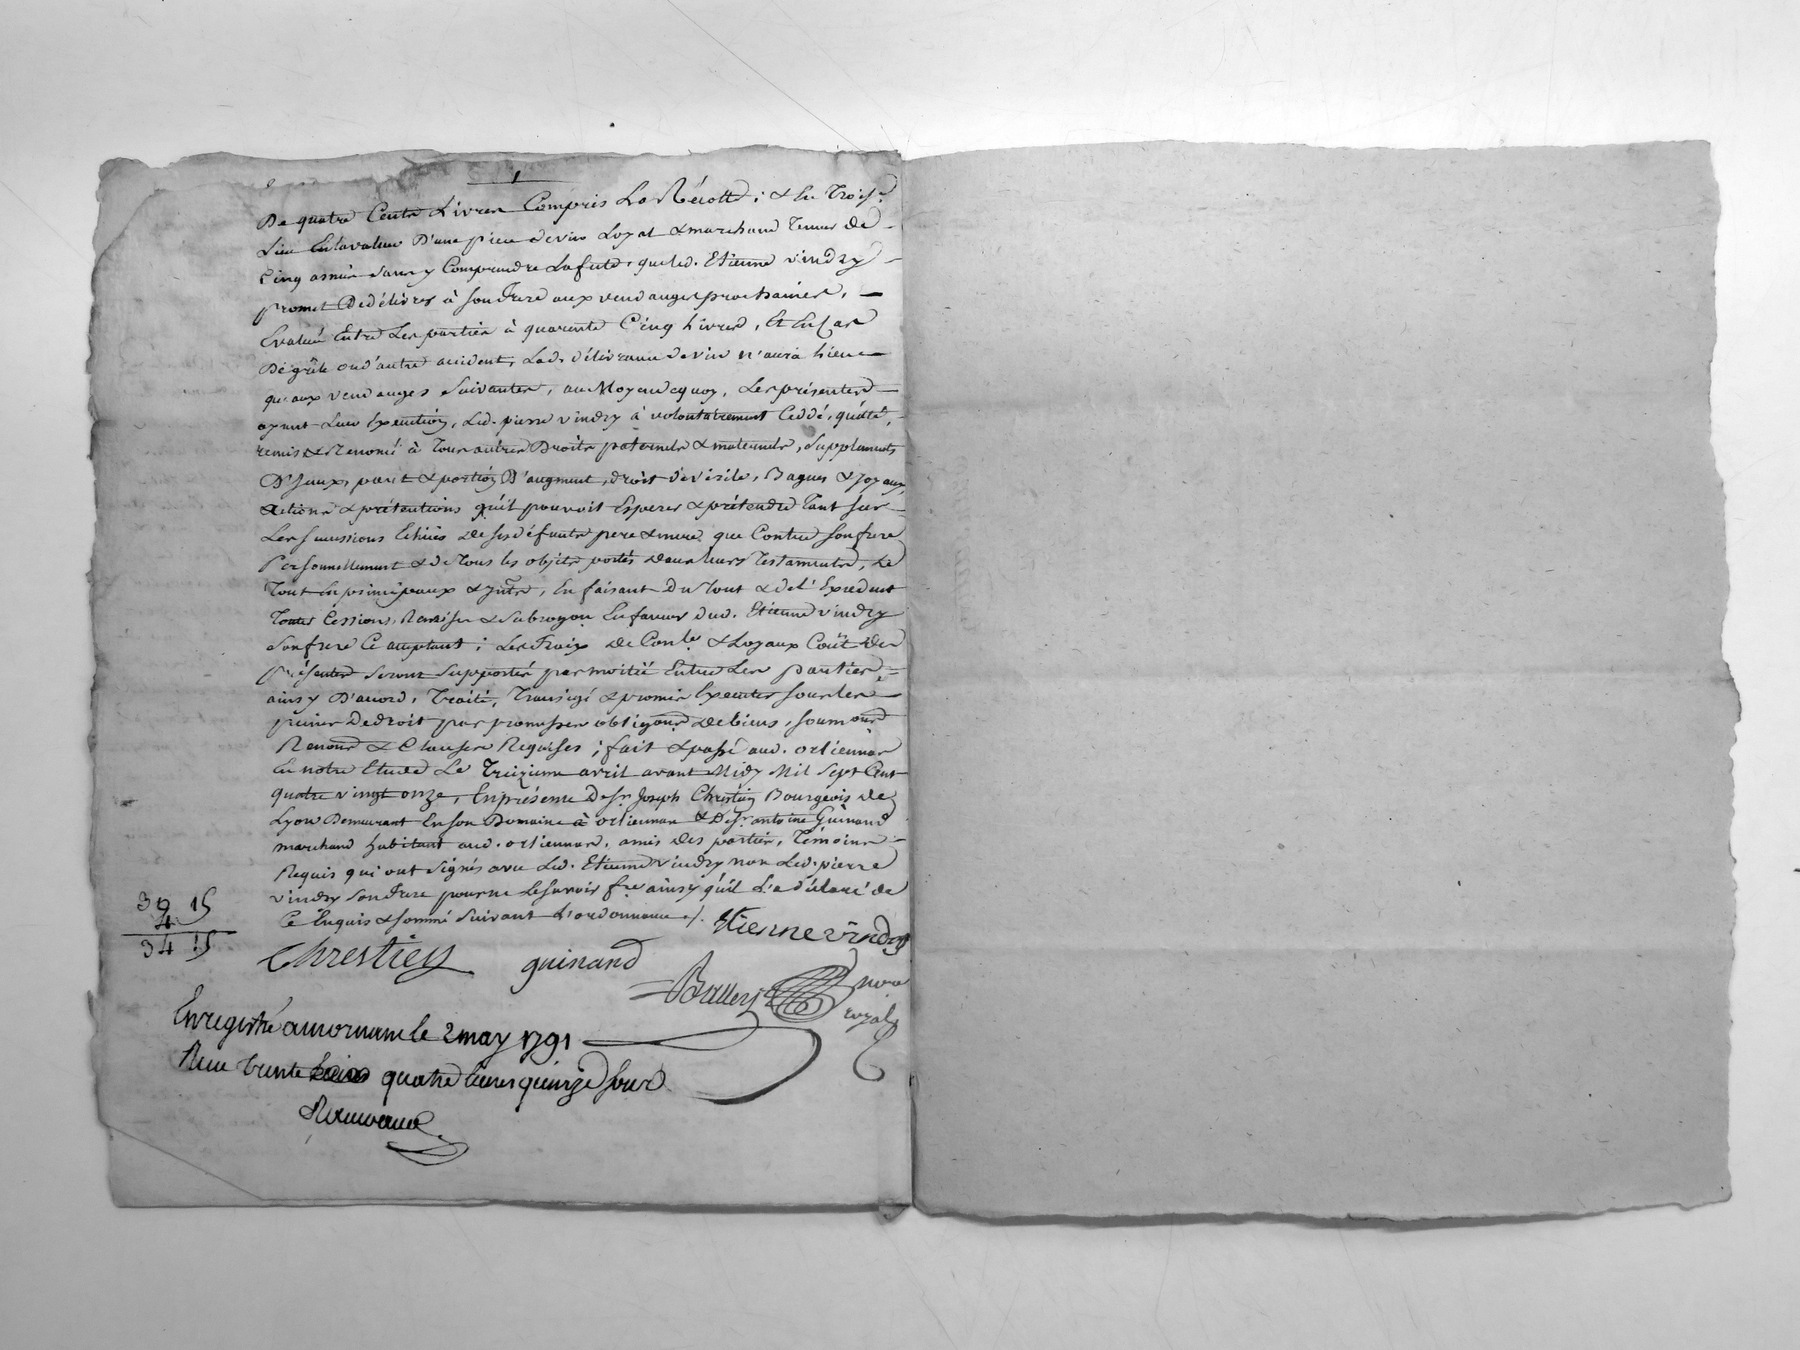 De quatre Cents Livres Compris La Récolte ; & En Trois.e
Lieu En la valeur D'une piece de vin Loyal & marchand Tenue de
Cinq annéés sans y Comprendre La futte, que led. Etienne vindry
promet De délivrer à son frere aux vendanges prochaines,
Evalué Entre Les parties à quarente Cinq Livres, Et En Cas
De grêle ou d'autre accident, Lad. délivrance de vin n'aura lieu
qu'aux vendanges Suivantes, au Moyen de quoy, Les présentes
ayant Leur Exécution, Led. pierre vindry à volontairement Ceddé, quitté,
remis & Renoncé à Tous autres Droits paternels & maternels, Supplements
D'Iceux, part & portion D'augment, droit de visite, Bagues & Joyaux,
Actions & prétentions qu'il pouvoit Esperer & prétendre Tant sur
Les successions Echües de ses défunts pere & mere que Contre son frere
Personnellement & de Tous les objets portés dans leurs Testaments, Le
Tout En principaux & Jnt̃s, En faisant du Tout & de l'Excedent
Toutes Cessions, Remises & Subrogõn En faveur dud. Etienne vindry
Son frere Ce acceptant ; Les fraix de Conle. & Loyaux Coût des
présentes seront supportés par moitié Entre Les parties
ainsy D'accord, Traité, Transigé & promis Exécuter sous les
peines de droit par promesses obligõns de biens, soumõns
Renonõns & Clauses Requises ; fait & passé aud. orliennas
En notre Etude Le Treizieme avril avant Midy Mil Sept Cent
quatre vingt onze, En présence De Sr. Joseph Chrestien Bourgeois de
Lyon Demeurant En son Domaine à orliennas & De Sr. antoine Guinand
marchand habitant aud. orliennas, amis des parties, Témoins
Requis qui ont signés avec Led. Etienne vindry non Led. pierre
vindry son frere pour ne le savoir f.re ainsy qu'il L'a déclaré de
Ce Enquis & sommé suivant L'ordonnance ./. Etienne vindry
39 15
4
34 15
Chrestien guinand
nore
royal
Enregistré a mornam le 2 may 1791
Recu trente quatre livres quinze sous